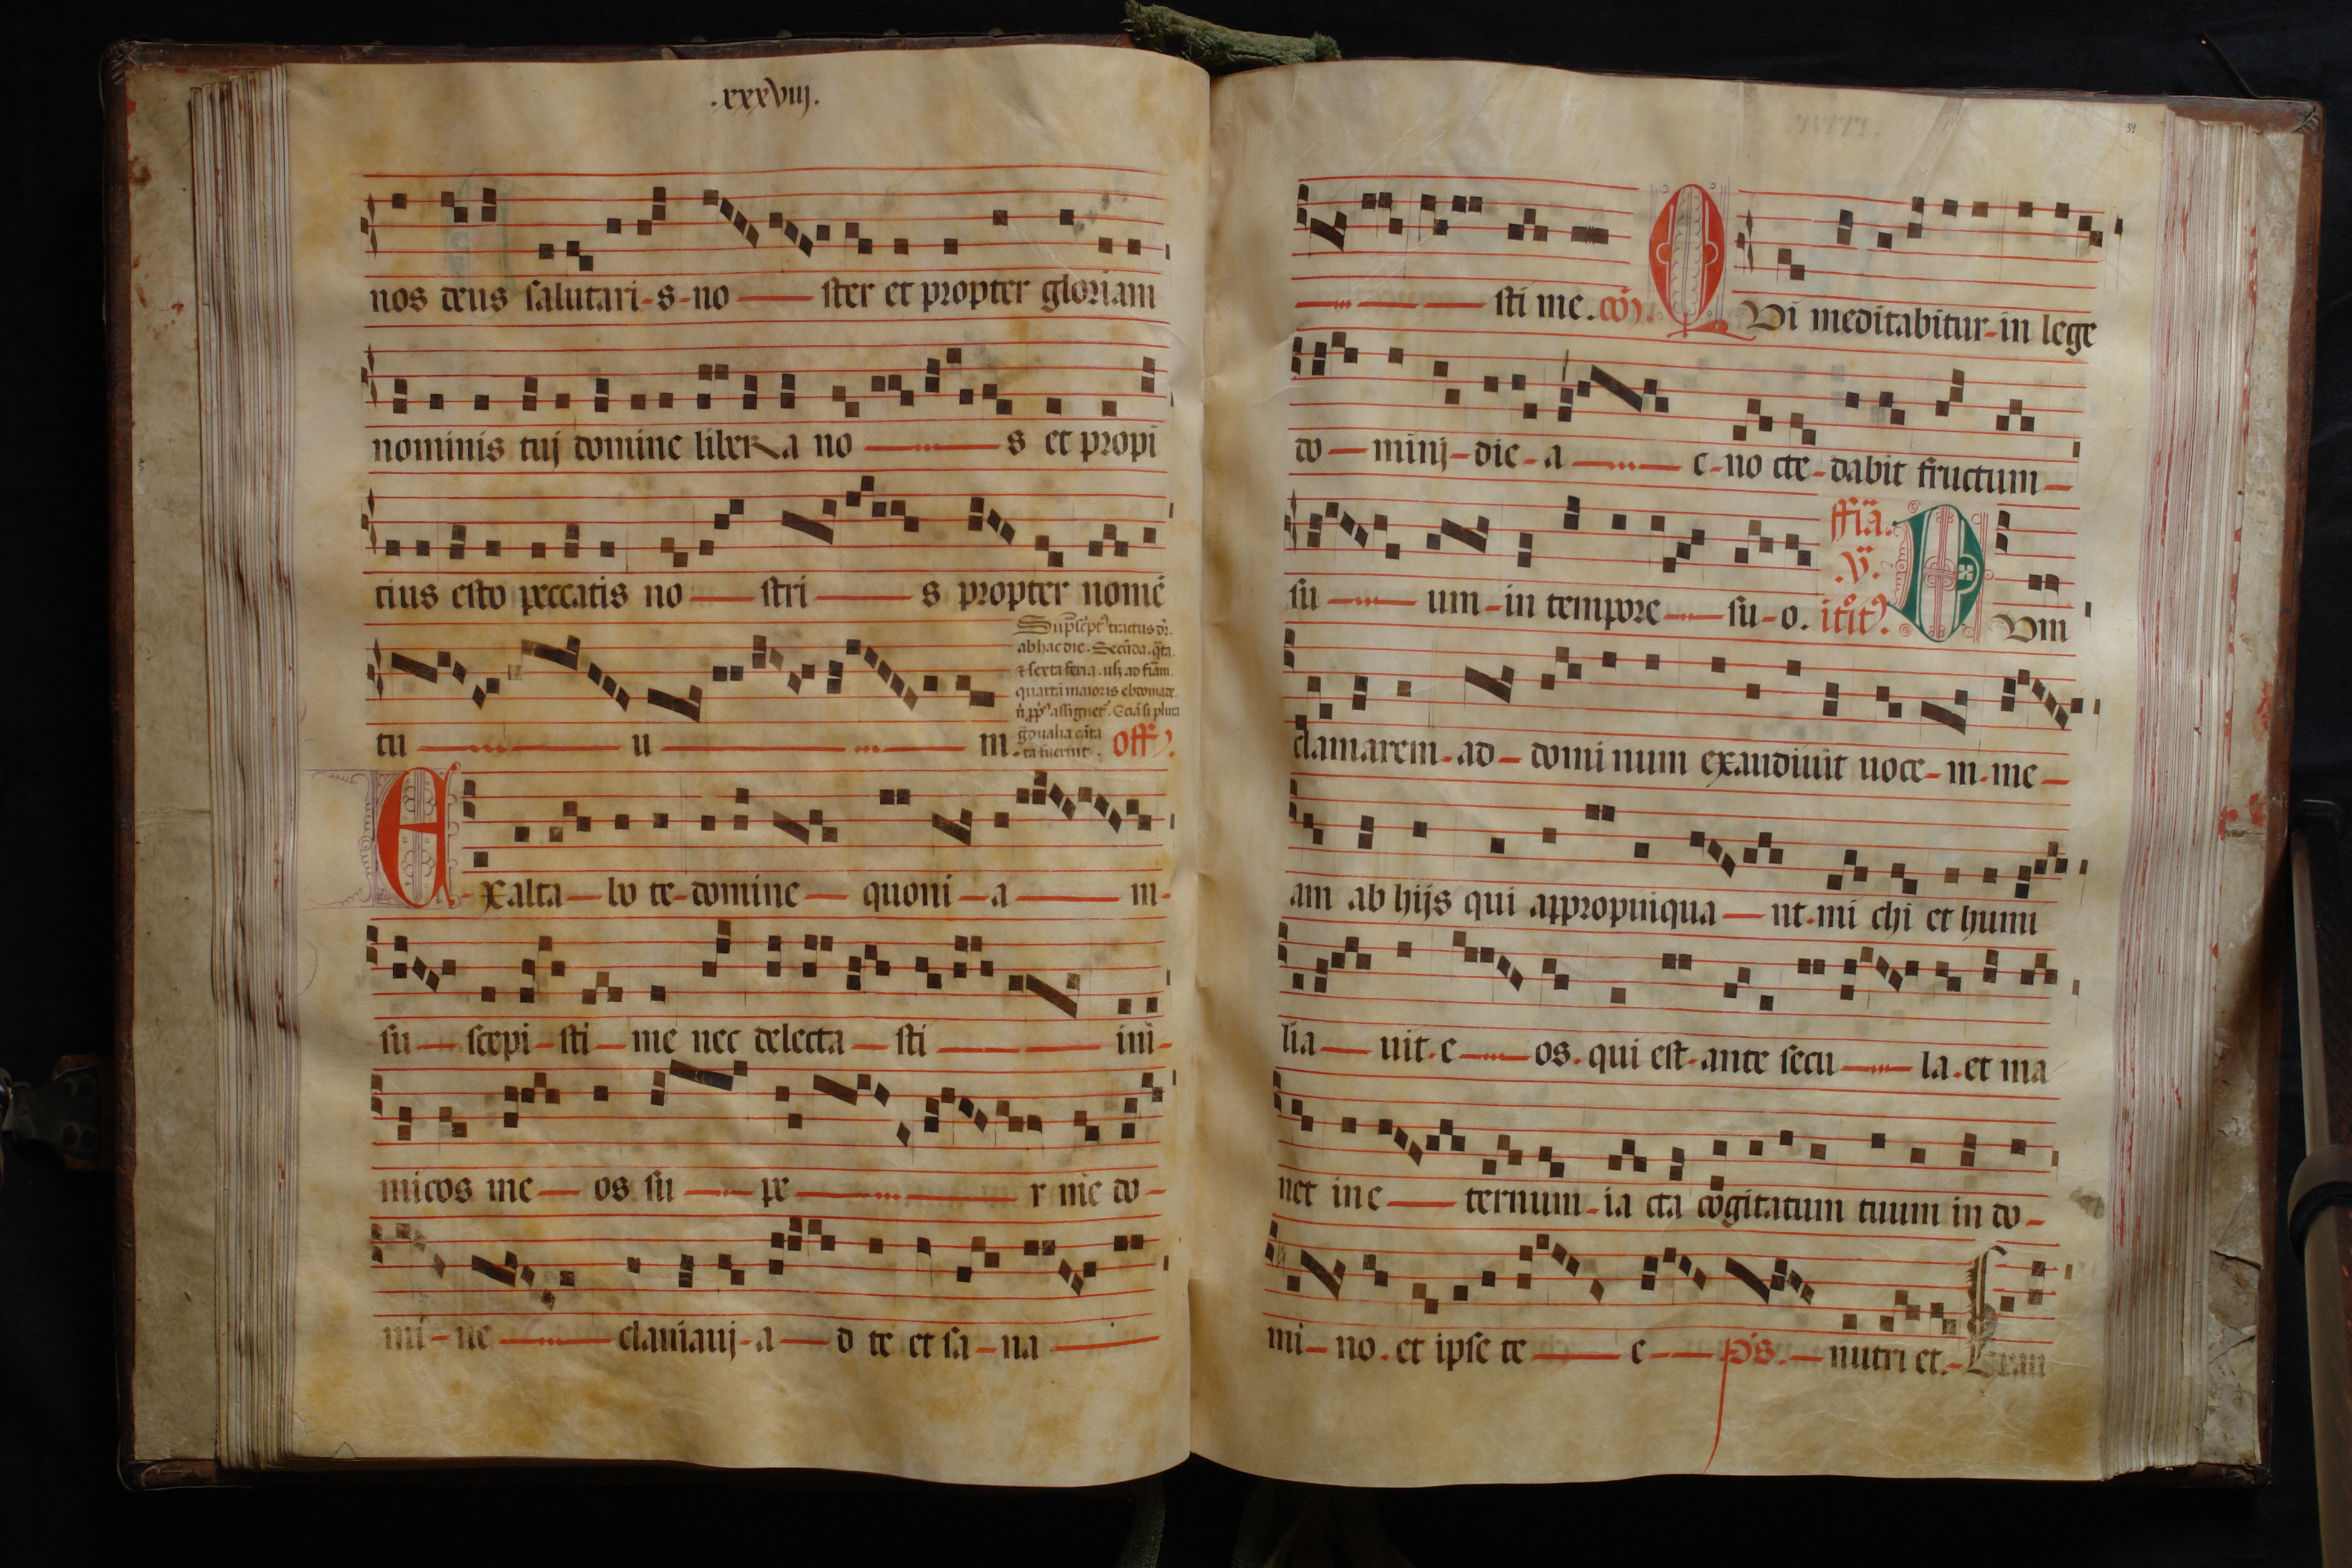 .xxxviij.
nos deus salutari-s-no — ster et propter gloriam
nominis tuj domine libera no — s et propi
tius esto peccatis no — stri — s propter nomē
tu — u — m.
ab hac die. Secūda. q̄rta
⁊ sexta feria. usq̄ ad fiām
quartā maioris ebdomade.
off̄.
Exalta — bo te-domine — quoni — a — m-
su — scepi-sti — me nec delecta — sti — ini-
micos me — os su — pe — r me do-
mi — ne — clamauj-a — d te et sa — na —
39
— sti me. cō̄.
QVi meditabitur-in lege
do — minj-die-a — c-no cte-dabit fructum —
su — um-in tempore — su-o.
ffiā.
.v̄.
itit̄.
DVm
clamarem-ad — domi num exaudiuit uoce-m-me —
am ab hijs qui appropinqua — nt-mi chi et humi
lia — uit-e — os. qui est-ante secu — la. et ma
net in e — ternum-ia cta cogitatum tuum in do-
mi — no. et ipse te — e — ps. — nutri et.-